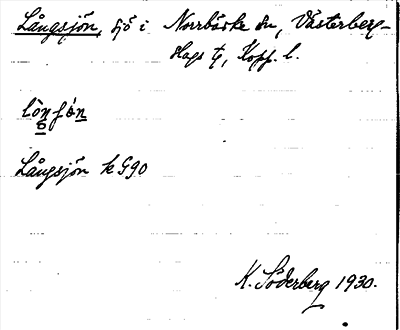 Långsjön, sjö i Norrbärke sn, Västerberg-
slags tg, Kopp. l.
lònʃǿn
Långsjön k G90
K. Söderberg 1930.